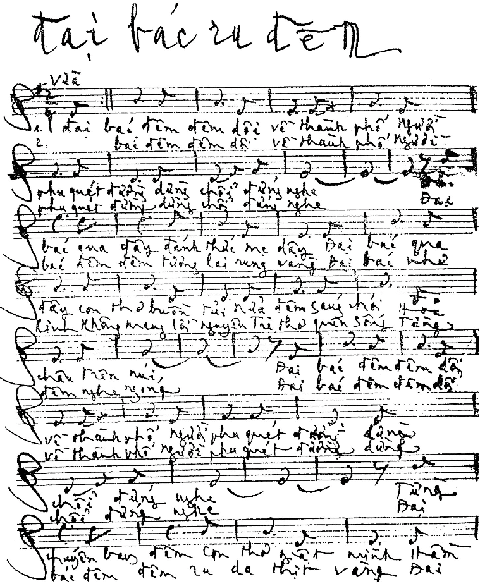 đại bác ru đêm
Vừa
1. đại bác đêm đêm dội về thành phố Người
2. bác đêm đêm dội về thành phố Người
phu quét đường dừng chổi đứng nghe Đại
phu quét đường dừng chổi đứng nghe Đại
bác qua đây đánh thức mẹ dậy Đại bác qua
bác đêm đêm tương lai rụng vàng Đại bác như
đây con thơ buồn tủi nửa đêm sáng chói Hỏa
kinh không mang lời nguyện Trẻ thơ quên sống Từng
châu trên núi Đại bác đêm đêm dội
đêm nghe ngóng Đại bác đêm đêm dội
về thành phố Người phu quét đường dừng
về thành phố Người phu quét đường dừng
chổi đứng nghe Từng
chổi đứng nghe Đại
chuyến bay đêm con thơ giật mình Hầm
bác đêm đêm ru da thịt vàng Đại